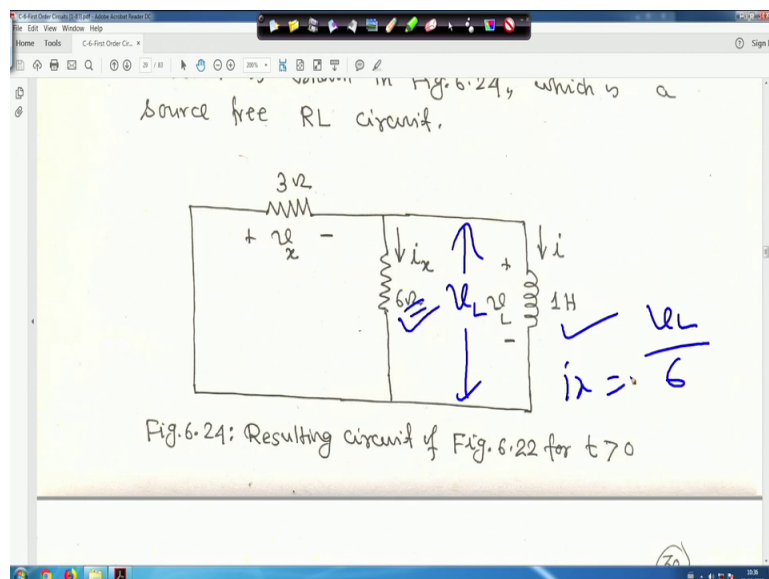 C-6-First Order Circuits [1-83].pdf - Adobe Acrobat Reader DC
File Edit View Window Help
Home Tools C-6-First Order Cir... × Sign I
29 / 83 200%
in Fig. 6.24, which is a
source free RL circuit.
3Ω
+ v_x −
i_x
i
6Ω
v_L
+
v_L
−
1H
i_x = v_L / 6
Fig. 6.24: Resulting circuit of Fig. 6.22 for t > 0
30
10:36